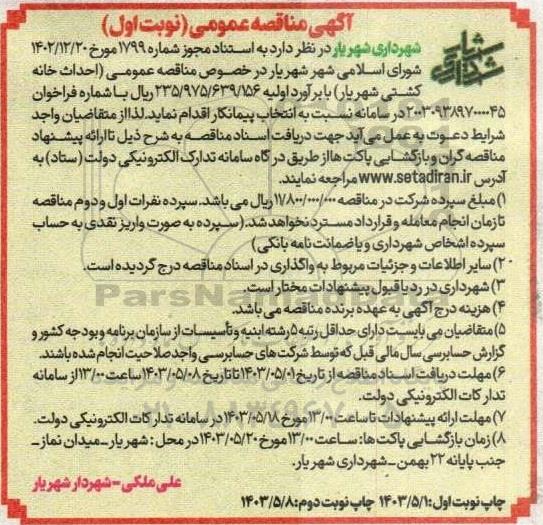 آگهی مناقصه عمومی (نوبت اول)
شهرداری شهریار در نظر دارد به استناد مجوز شماره ۱۷۹۹ مورخ ۱۴۰۲/۱۲/۲۰
شورای اسلامی شهر شهریار در خصوص مناقصه عمومی (احداث خانه
کشتی شهریار) با برآورد اولیه ۲۳۵/۹۷۵/۶۳۹/۱۵۶ ریال با شماره فراخوان
۲۰۰۳۰۹۳۸۹۷۰۰۰۰۴۵ در سامانه نسبت به انتخاب پیمانکار اقدام نماید. لذا از متقاضیان واجد
شرایط دعوت به عمل می آید جهت دریافت اسناد مناقصه به شرح ذیل تا ارائه پیشنهاد
مناقصه گران و بازگشایی پاکت ها از طریق درگاه سامانه تدارک الکترونیکی دولت (ستاد) به
آدرس www.setadiran.ir مراجعه نمایند.
۱) مبلغ سپرده شرکت در مناقصه ۱۷/۸۰۰/۰۰۰/۰۰۰ ریال می باشد. سپرده نفرات اول و دوم مناقصه
تا زمان انجام معامله و قرارداد مسترد نخواهد شد. (سپرده به صورت واریز نقدی به حساب
سپرده اشخاص شهرداری و یا ضمانت نامه بانکی)
۲) سایر اطلاعات و جزئیات مربوط به واگذاری در اسناد مناقصه درج گردیده است.
۳) شهرداری در رد یا قبول پیشنهادات مختار است.
۴) هزینه درج آگهی به عهده برنده مناقصه می باشد.
۵) متقاضیان می بایست دارای حداقل رتبه ۵ رشته ابنیه و تأسیسات از سازمان برنامه و بودجه کشور و
گزارش حسابرسی سال مالی قبل که توسط شرکت های حسابرسی واجد صلاحیت انجام شده باشند.
۶) مهلت دریافت اسناد مناقصه از تاریخ ۱۴۰۳/۰۵/۰۱ تا تاریخ ۱۴۰۳/۰۵/۰۸ ساعت ۱۳/۰۰ از سامانه
تدارکات الکترونیکی دولت.
۷) مهلت ارائه پیشنهادات تا ساعت ۱۳/۰۰ مورخ ۱۴۰۳/۰۵/۱۸ در سامانه تدارکات الکترونیکی دولت.
۸) زمان بازگشایی پاکت ها: ساعت ۱۳/۰۰ مورخ ۱۴۰۳/۰۵/۲۰ در محل: شهریار - میدان نماز -
جنب پایانه ۲۲ بهمن - شهرداری شهریار.
علی ملکی - شهردار شهریار
چاپ نوبت اول: ۱۴۰۳/۵/۱ چاپ نوبت دوم: ۱۴۰۳/۵/۸
ParsNamadData